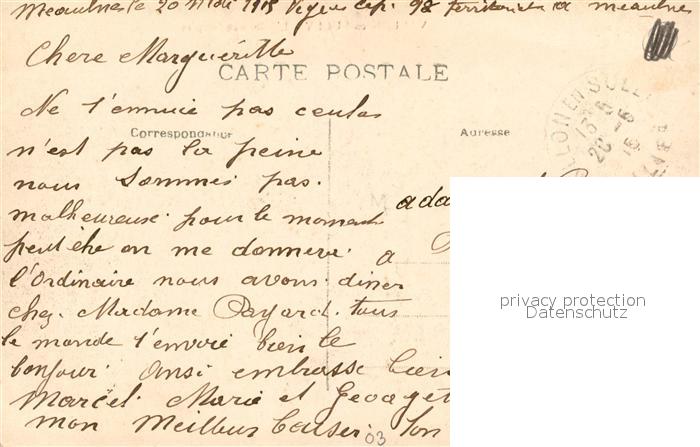 Meaulne le 20 Mai 1915 Vigier cap. 98 territorial a meaulne
Chere Marguéritte
CARTE POSTALE
Ne t'ennuie pas
Correspondance
Adresse
n'est pas la peine
nous sommes pas
malheureuse pour le moment
peut être on me donnera a
l'Ordinaire nous avons diner
chez Madame Payard tous
le monde t'envoie bien le
bonjour ansi embrasse bien
Marcel Marie et Georget
mon Meilleur baiser ton
03
privacy protection
Datenschutz